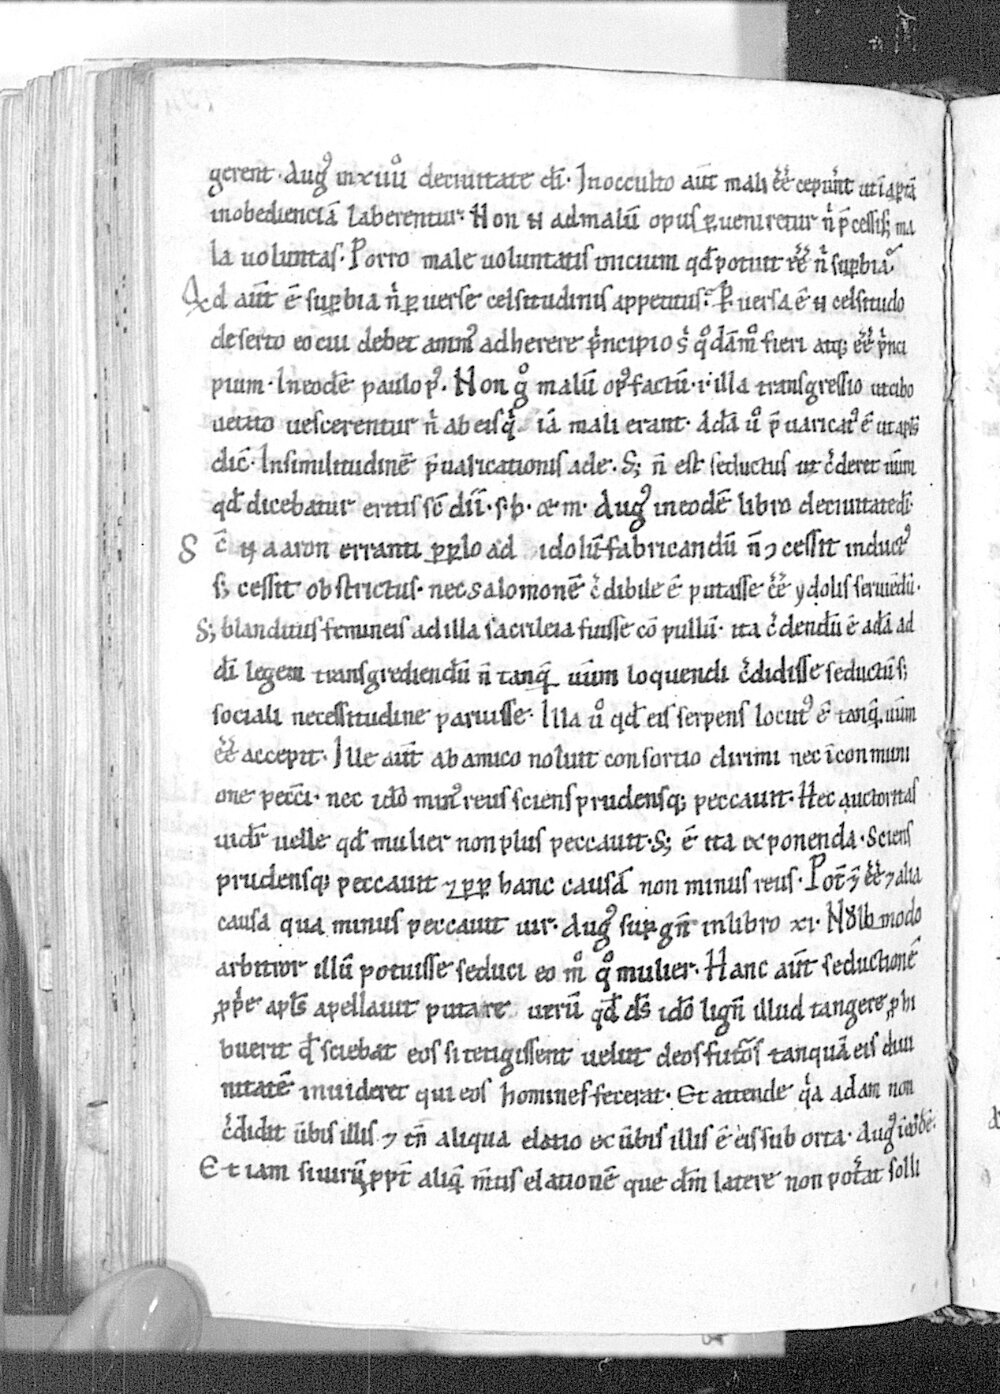 gerent. Augꝰ in xiiiiͦ de ciuitate dī. In occulto aūt mali eē̄ ceperūt ut ī aꝑtā
inobedienciā laberentur. Non .n. ad malū opus ꝑueniretur nͥ p̄cessiss; ma
la uoluntas. Porro male uoluntatis inicium qd̄ potuit eē̄ nͥ suꝑbia.
Qd aūt ē suꝑbia nͥ ꝑuerse celsitudinis appetitus. Ꝑuersa ē .n. celsitudo
deserto eo cui debet animꝰ adherere pͥncipio sͥ qͦdāmͦ fieri atq; eē̄ pͥnci
pium. In eodē paulo pꝰ. Non gͦ malū opꝰ factū .i. illa transgressio ut cibo
uetito uescerentur nͥ ab eis qͥ iā mali erant. Adā uͦ p̄uaricatꝰ ē ut apls
dic̄. In similitudinē p̄uaricationis ade. S; n̄ est seductus ut cͥderet uūm
qd̄ dicebatur eritis sc̄ dii. s. b. &̄ m. Augꝰ in eodē libro de ciuitate dī.
Sic̄ .n. aaron erranti pp̄lo ad idolū fabricandū n̄ ⁊cessit inductꝰ
s; cessit obstrictus. nec salomonē cͥdibile ē putasse eē̄ ydolis seruiēdū.
S; blanditiis femineis ad illa sacrileia fuisse cōpullū. ita cͥdendū ē adā ad
dī legem transgrediendū n̄ tanq̄ uūm loquendi cͥdidisse seductū s;
sociali necessitudine paruisse. Illa uͦ qd̄ eis serpens locutꝰ ē tanq̄ uūm
eē̄ accepit. Ille aūt ab amico noluit consortio dirimi nec ī conmuni
one pecc̄i. nec idō minꝰ reus sciens prudensq; peccauit. Hec auctoritas
uidr̄ uelle qd̄ mulier non plus peccauit. S; ē ita exponenda. Sciens
prudensq; peccauit ⁊ ꝓpꝑ hanc causā non minus reus. Pot̄ ⁊ eē̄ ⁊ alia
causa qua minus peccauit uir. Augꝰ suꝑ gn̄ in libro xi. Null̄o modo
arbitror illū potuisse seduci eo mͦ qͦ mulier. Hanc aūt seductionē
ꝓpͥe apls̄ apellauit putare uerū qd̄ ds̄ idō lign̄ illud tangere ꝓhi
buerit qd̄ sciebat eos si tetigissent uelut deos futōs tanquā eis diui
nitatē inuideret qui eos homines fecerat. Et attende qͥa adam non
cͥdidit ūbis illis ⁊ tn̄ aliqua elatio ex ūbis illis ē eis sub orta. Augꝰ ī eͦdē.
Et iam si uirū ꝓpt̄ aliq̄ m̄tis elationē que dm̄ latere non potͥat solli